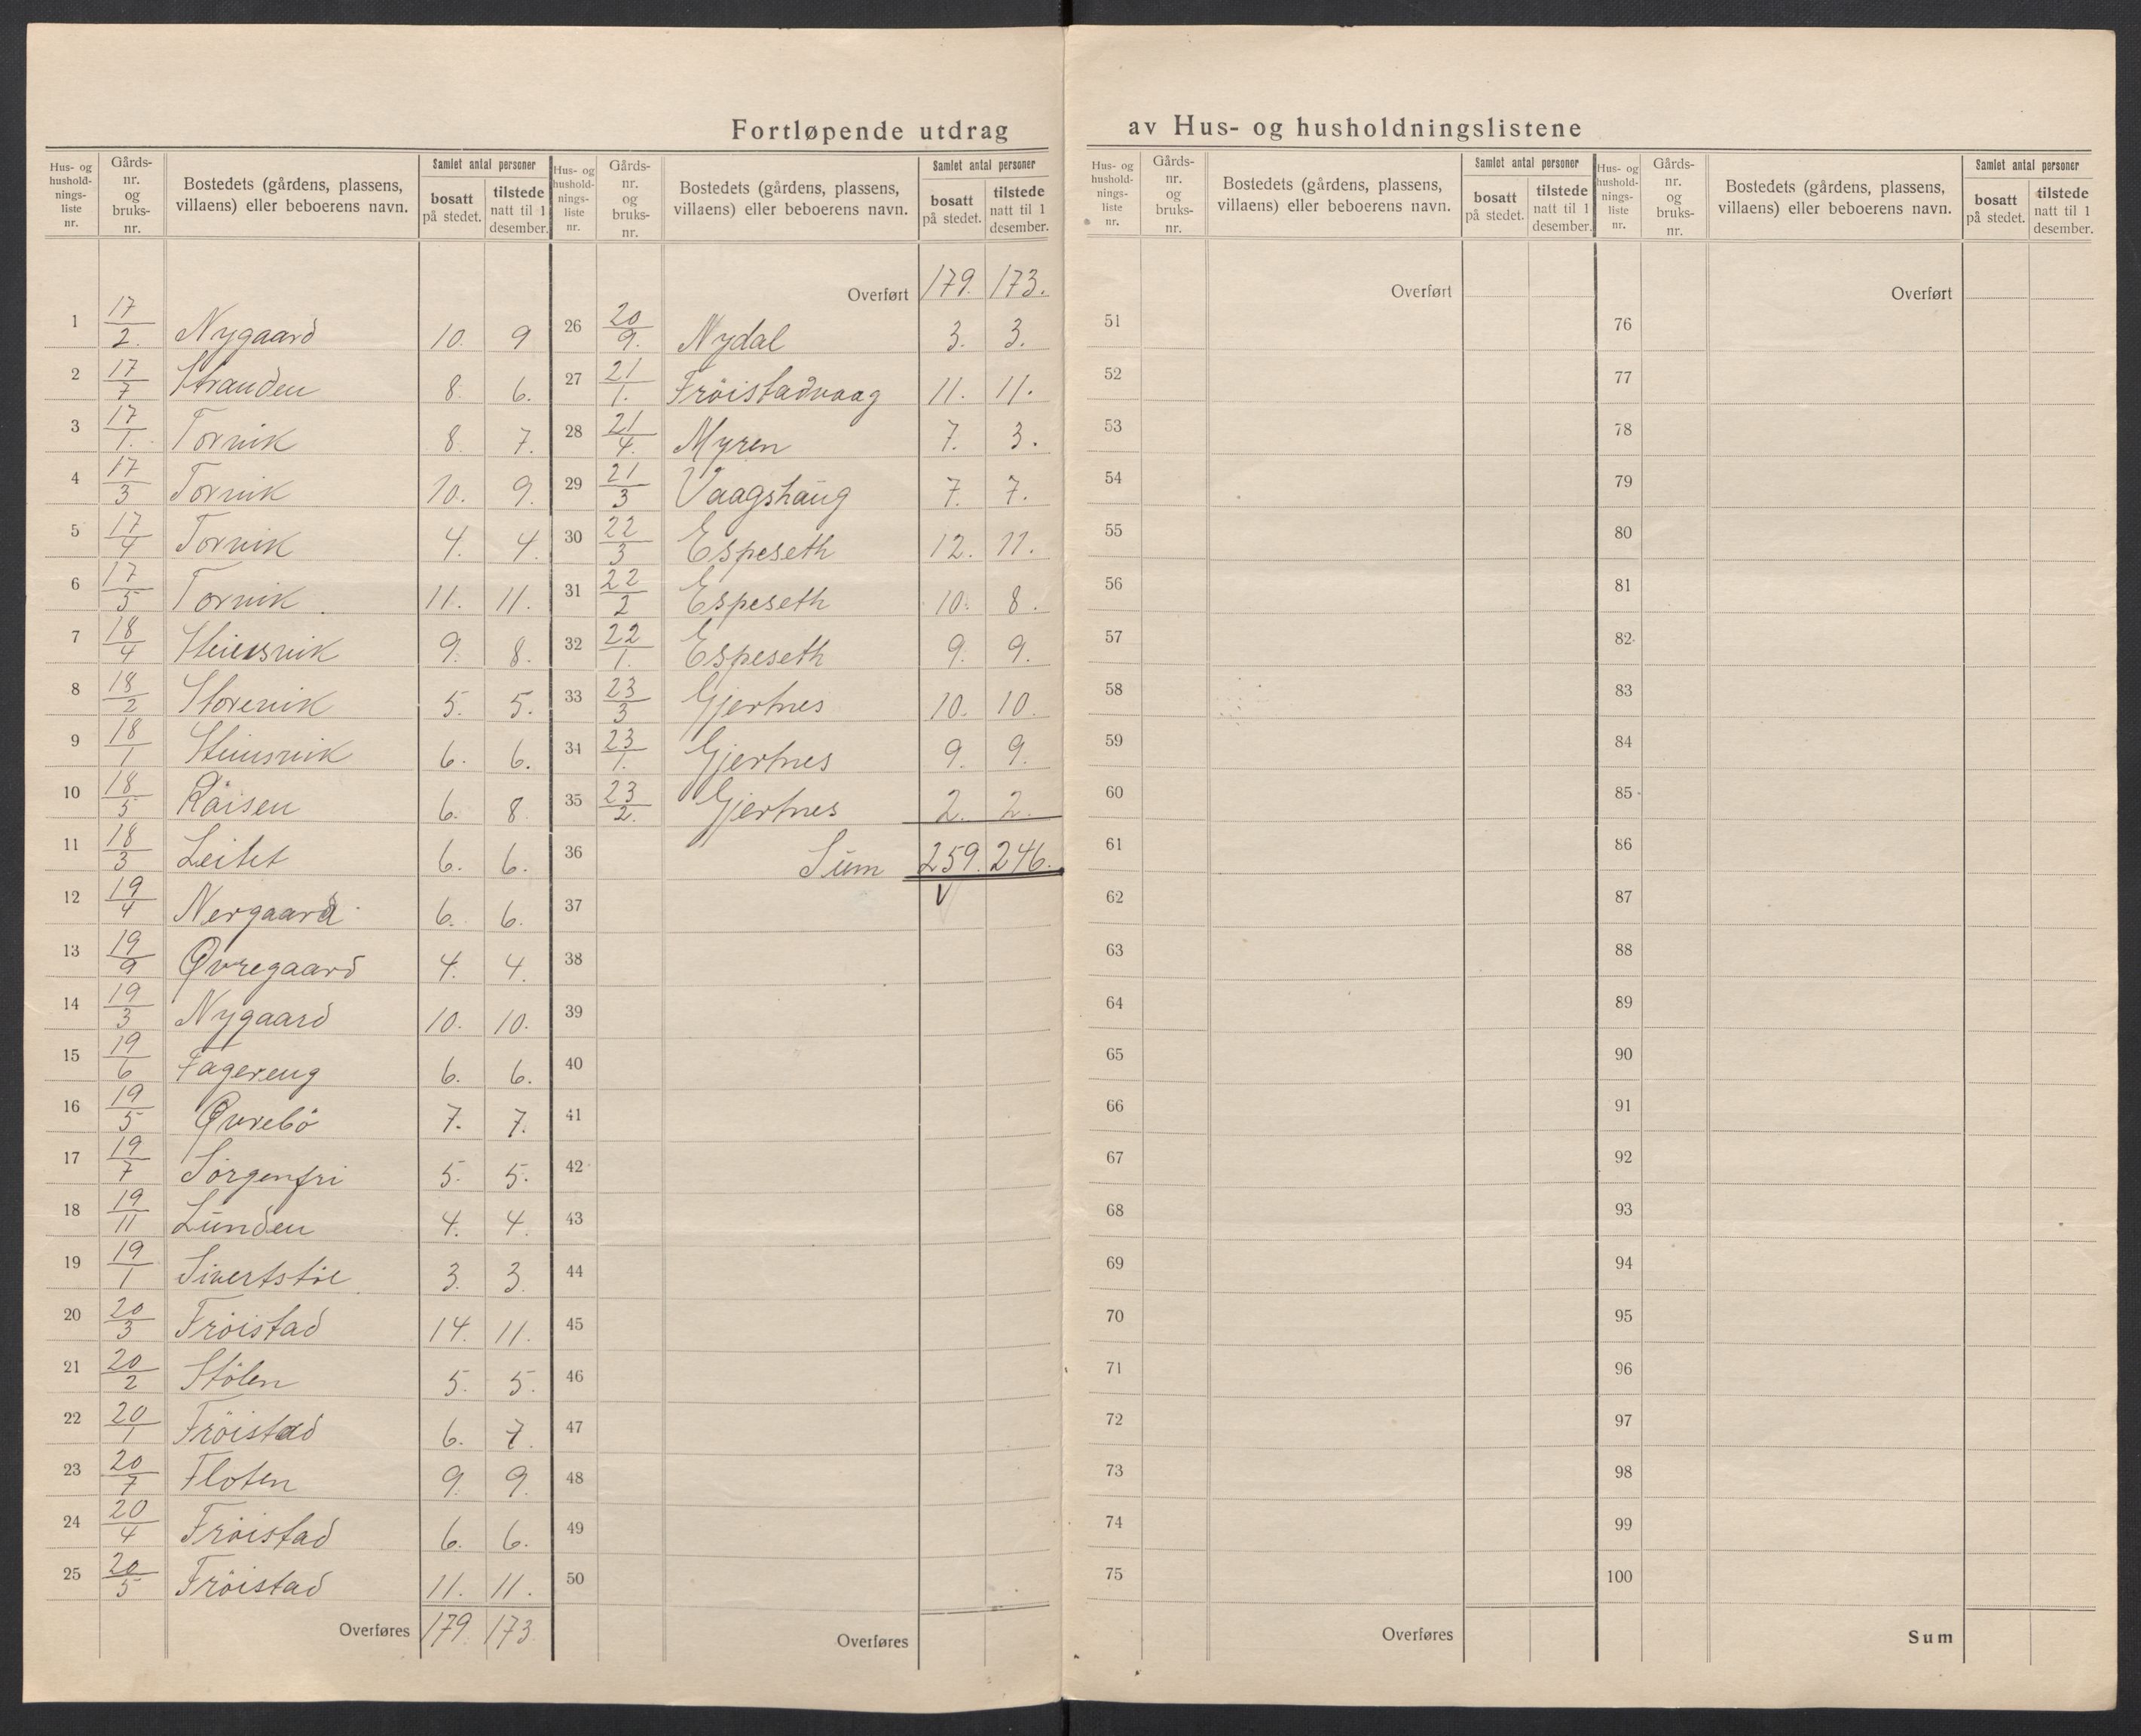 Fortløpende utdrag av Hus- og husholdningslistene
Hus- og husholdningsliste nr. | Gårds-nr. og bruks-nr. | Bostedets (gårdens, plassens, villaens) eller beboerens navn. | Samlet antal personer bosatt på stedet. | tilstede natt til 1 desember.
1 17/2. Nygaard 10. 9
2 17/7 Stranden 8. 6.
3 17/1. Torvik 8. 7.
4 17/3 Torvik 10. 9.
5 17/4 Torvik 4. 4.
6 17/5 Torvik. 11. 11.
7 18/4 Steinsvik 9. 8.
8 18/2 Storevik 5. 5.
9 18/1 Steinsvik 6. 6.
10 18/5 Röisen 6. 8.
11 18/3 Leitet 6. 6.
12 19/4 Nergaard 6. 6.
13 19/9 Øvregaard 4. 4.
14 19/3 Nygaard 10. 10.
15 19/6 Fagereng 6. 6.
16 19/5 Øvrebö 7. 7.
17 19/7 Sorgenfri 5. 5.
18 19/11 Lunden 4. 4.
19 19/1 Sivertstöl 3. 3.
20 20/3 Fröistad 14. 11.
21 20/2 Stölen 5. 5.
22 20/1 Fröistad 6. 7.
23 20/7 Floten 9. 9.
24 20/4 Fröistad 6. 6.
25 20/5 Fröistad 11. 11.
Overføres 179. 173.
Hus- og husholdningsliste nr. | Gårds-nr. og bruks-nr. | Bostedets (gårdens, plassens, villaens) eller beboerens navn. | Samlet antal personer bosatt på stedet. | tilstede natt til 1 desember.
Overført 179. 173.
26 20/9. Nydal 3. 3.
27 21/1. Fröistadvaag 11. 11.
28 21/4. Myren 7. 3.
29 21/3 Vaagshaug 7. 7.
30 22/3 Espeseth 12. 11.
31 22/2 Espeseth 10. 8.
32 22/1. Espeseth 9. 9.
33 23/3 Gjertnes 10. 10.
34 23/1. Gjertnes 9. 9.
35 23/2. Gjertnes 2. 2.
36 Sum 259. 246.
37
38
39
40
41
42
43
44
45
46
47
48
49
50
Overføres
Hus- og husholdningsliste nr. | Gårds-nr. og bruks-nr. | Bostedets (gårdens, plassens, villaens) eller beboerens navn. | Samlet antal personer bosatt på stedet. | tilstede natt til 1 desember.
Overført
51
52
53
54
55
56
57
58
59
60
61
62
63
64
65
66
67
68
69
70
71
72
73
74
75
Overføres
Hus- og husholdningsliste nr. | Gårds-nr. og bruks-nr. | Bostedets (gårdens, plassens, villaens) eller beboerens navn. | Samlet antal personer bosatt på stedet. | tilstede natt til 1 desember.
Overført
76
77
78
79
80
81
82
83
84
85
86
87
88
89
90
91
92
93
94
95
96
97
98
99
100
Sum